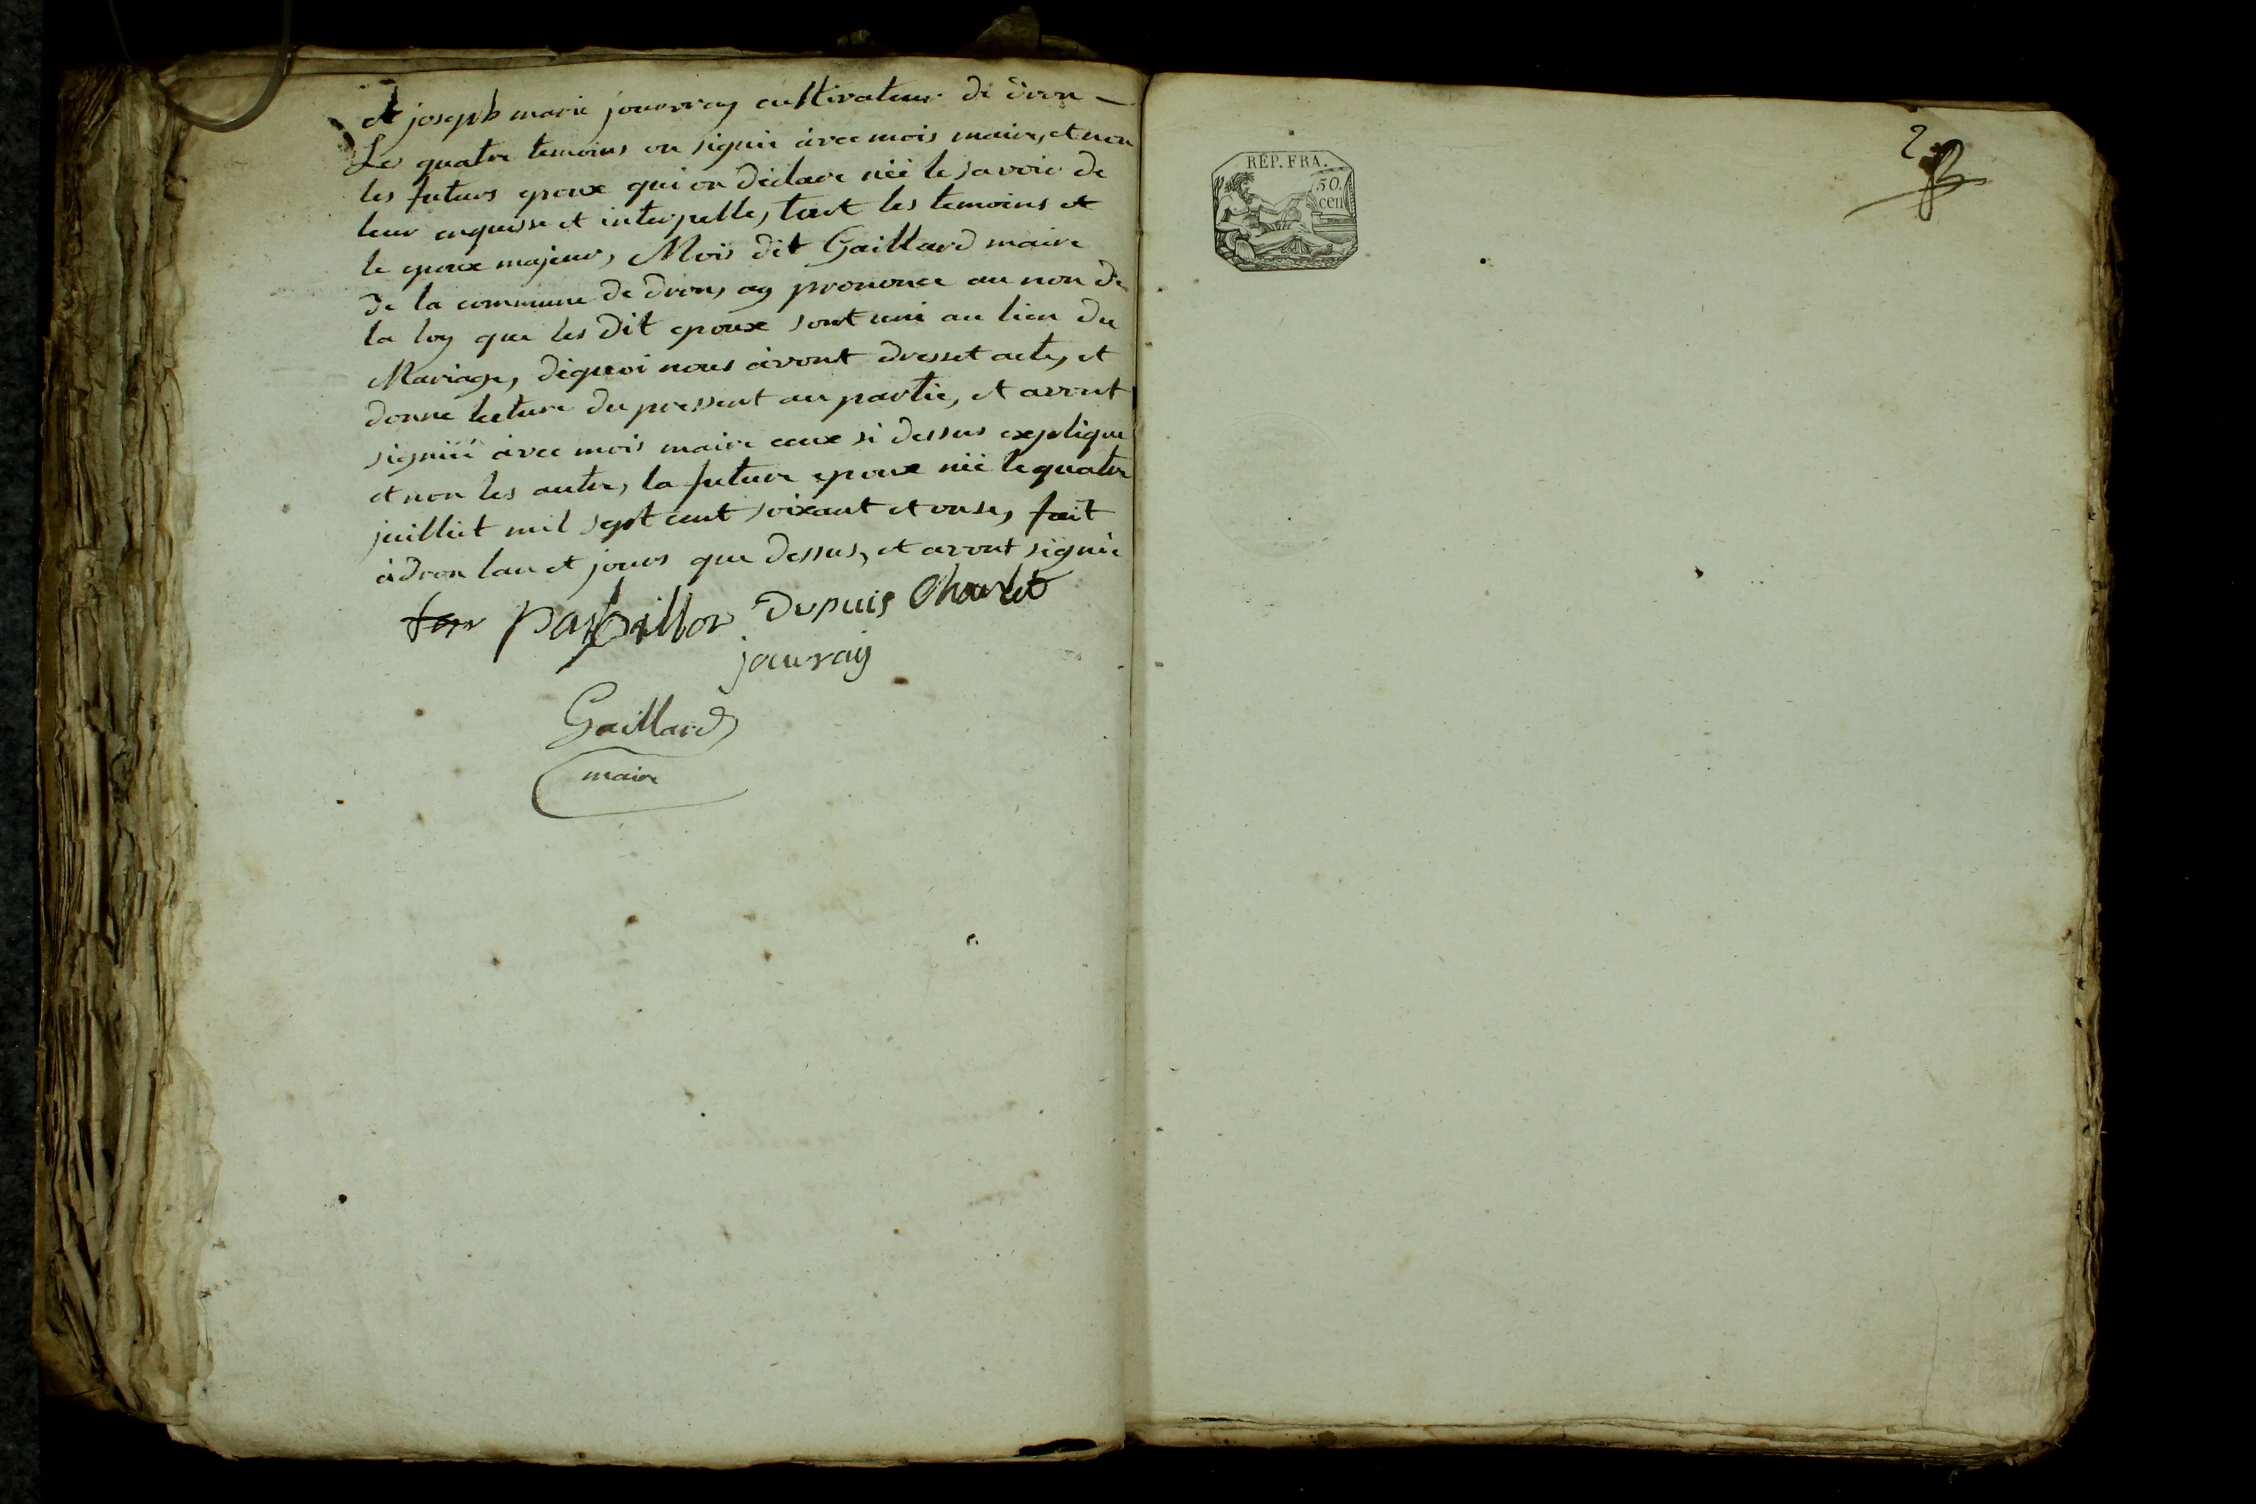 et joseph marie jouvray cultivateur de dron
Les quatre temoins on signié avec mois maire, et non
les futurs epoux qui on déclare néé le savoir de
leur enquisse et interpelle, tout les temoins et
le epoux majeur, Mois dit Gaillard maire
de la commune de dron, ay prononce au non de
la loy que les dit epoux sont uni au lien du
Mariage, dequoi nous avont dresset acte, et
donne lecture du pressent au partie, et avont
signiéé avec mois maire ceux si dessus explique
et non les autre, la future epoux néé le quatre
juilliet mil sept cent soixant et onse, fait
à dron lan et jours que dessus, et avont signie
papillon Dupuis Charlet
jouvray
Gaillard
maire
2
RÉP. FRA.
50.
cen